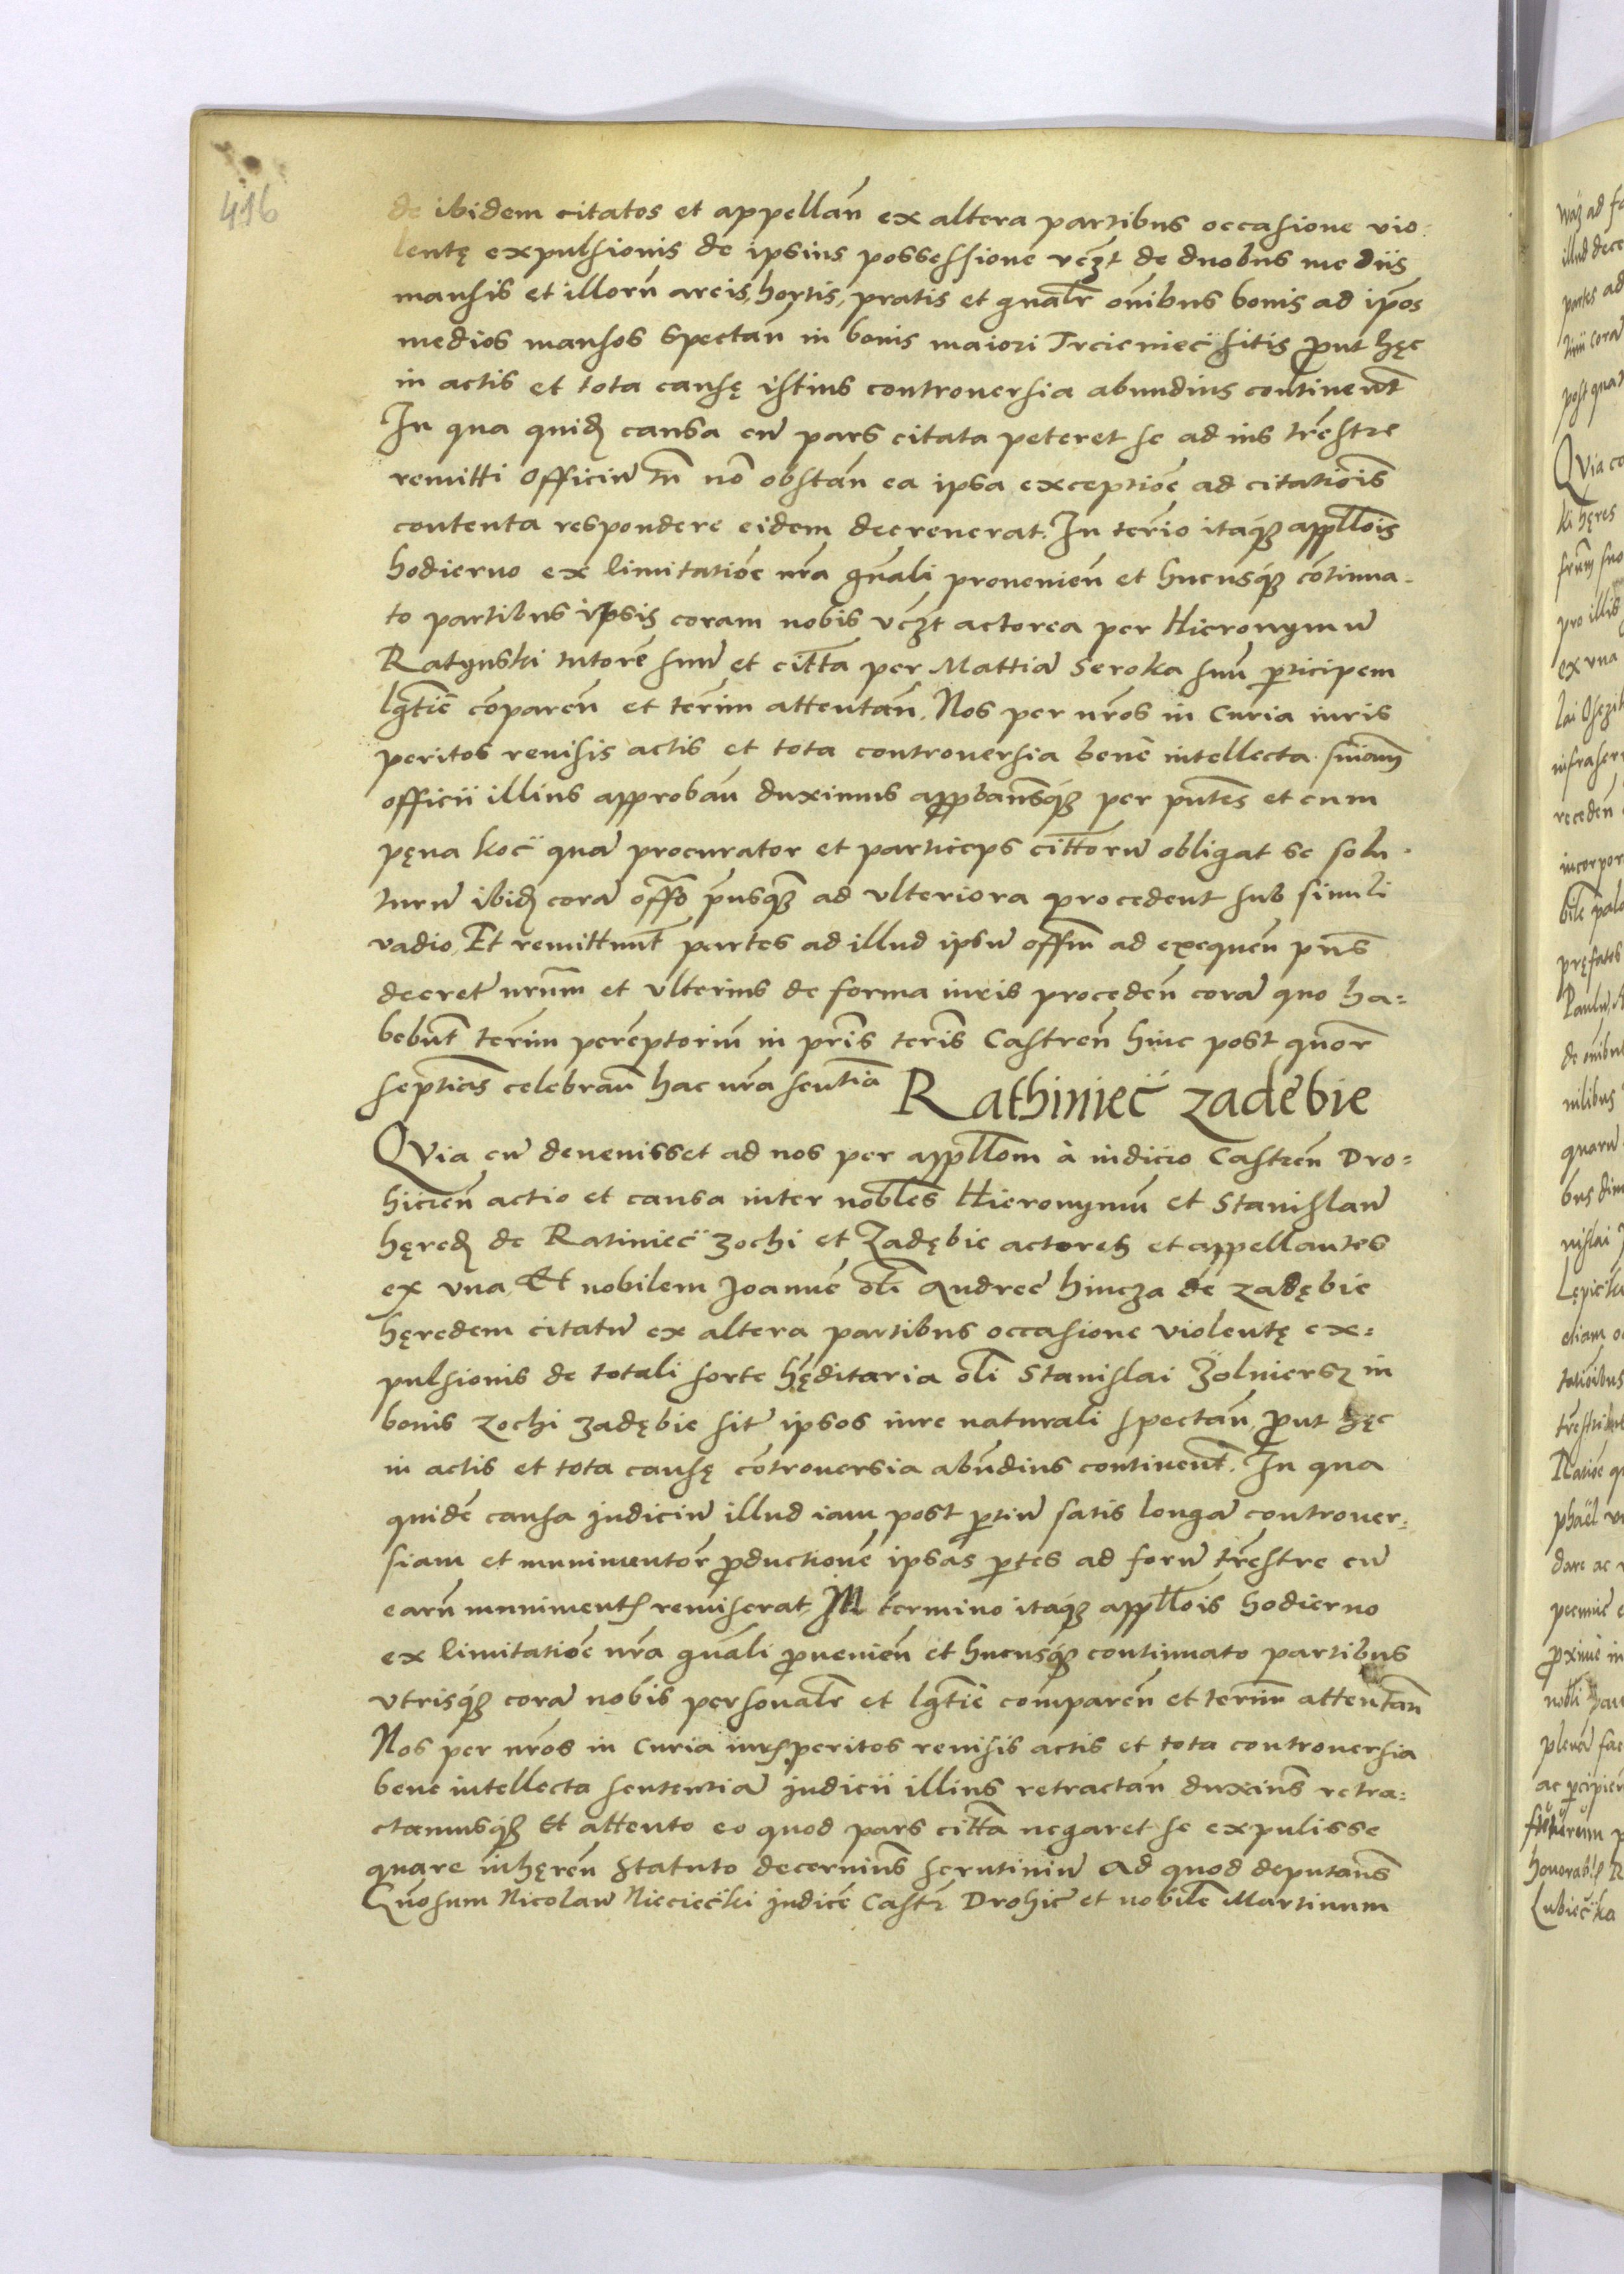 416
de ibidem citatos et appellan̄ ex altera partibus occasione vio:
lentę expulsionis de ipsius possessione vcȝt de duobus mediis
mansis et illorū areis, hortis, pratis et gnalr̄ om̄ibus bonis ad ip̄os
medios mansos spectan̄ in bonis maiori Trcienieč sitis put hęc
in actis et tota causę istius controuersia abundius continent̄
In qua quid causa cū pars citata peteret se ad ius tr̄estre
remitti Officiū tn̄ nō obstan̄ ea ipsa exceptiōe ad citatiōis
contenta respondere eidem decreuerat. In ter̄io itaqȝ app̄llois
hodierno ex limitatiōe nr̄a gn̄ali prouenien̄ et hucusqȝ cōtinua-
to partibus ipsis coram nobis vcȝt actorea per Hieronymū
Ratynski tutorē suū et citt̄a per Mattiā Seroka suū pticipem
lgt̄ie cōparen̄ et ter̄im attentan̄. Nos per nr̄os in Curia iuris
peritos reuisis actis et tota controuersia bene intellecta sn̄iam
officii illius approbān duximus appbam̄sqȝ per pn̄tes et cum
pęna koč quā procurator et particeps citt̄orū obligat se solu-
turū ibid corā off̄o pusqȝ ad vlteriora procedent sub simili
vadio, Et remittunt̄ partes ad illud ipsū off̄m ad exequen̄ pn̄s
decretū nr̄um et vlterius de forma iuris proceden̄ corā quo ha=
bebunt̄ ter̄im perēptoriū in pr̄is ter̄is Castren̄ hinc post quor̄
septiās celebran̄ hac nr̄a sentn̄ia
Rathinieč zadębie
QVia cū deuenisset ad nos per app̄llom à iudicio Castren̄ Dro=
hicien̄ actio et causa inter nobles Hieronymū et Stanislaū
hęred de Ratinieč zochi et Zadębie actores et appellantes
ex vna, Et nobilem Joannē ol̄i Andreę hincza de zadębie
hęredem citatū ex altera partibus occasione violentę ex=
pulsionis de totali sorte hęditaria ol̄i Stanislai Żolniersz in
bonis zochi zadębie sitꝰ ipsos iure naturali spectan̄, put hęc
in actis et tota causę cōtrouersia abūdius continent̄. In qua
quidē causa judiciū illud iam post ptiū satis longā controuer=
siam et munimentor̄ pductionē ipsas ptes ad forū tr̄estre cū
earū munimentis remiserat, In termino itaqȝ app̄llois hodierno
ex limitatiōe nr̄a gn̄ali puenien̄ et hucusqȝ continuato partibus
vtrisqȝ corā nobis personalr̄ et lgt̄ie comparen̄ et ter̄im attentan̄
Nos per nr̄os in Curia iurisperitos reuisis actis et tota controuersia
bene intellecta sententiā judicii illius retractan̄ duxim̄s retra=
ctamusqȝ Et attento eo quod pars citt̄a negaret se expulisse
quare inhęren̄ statuto decernim̄s scrutiniū ad quod deputam̄s
Gn̄osum Nicolaū Nieciečki judicē Castr̄ Drohič et nobilē Martinum